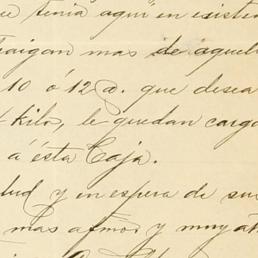 e tenía aquí en existen
Traigan mas de aquel
10 ó 12 @. que desea
kilo, le quedan carga
a ésta Caja.
lud y en espera de su
mas afmos y muy at